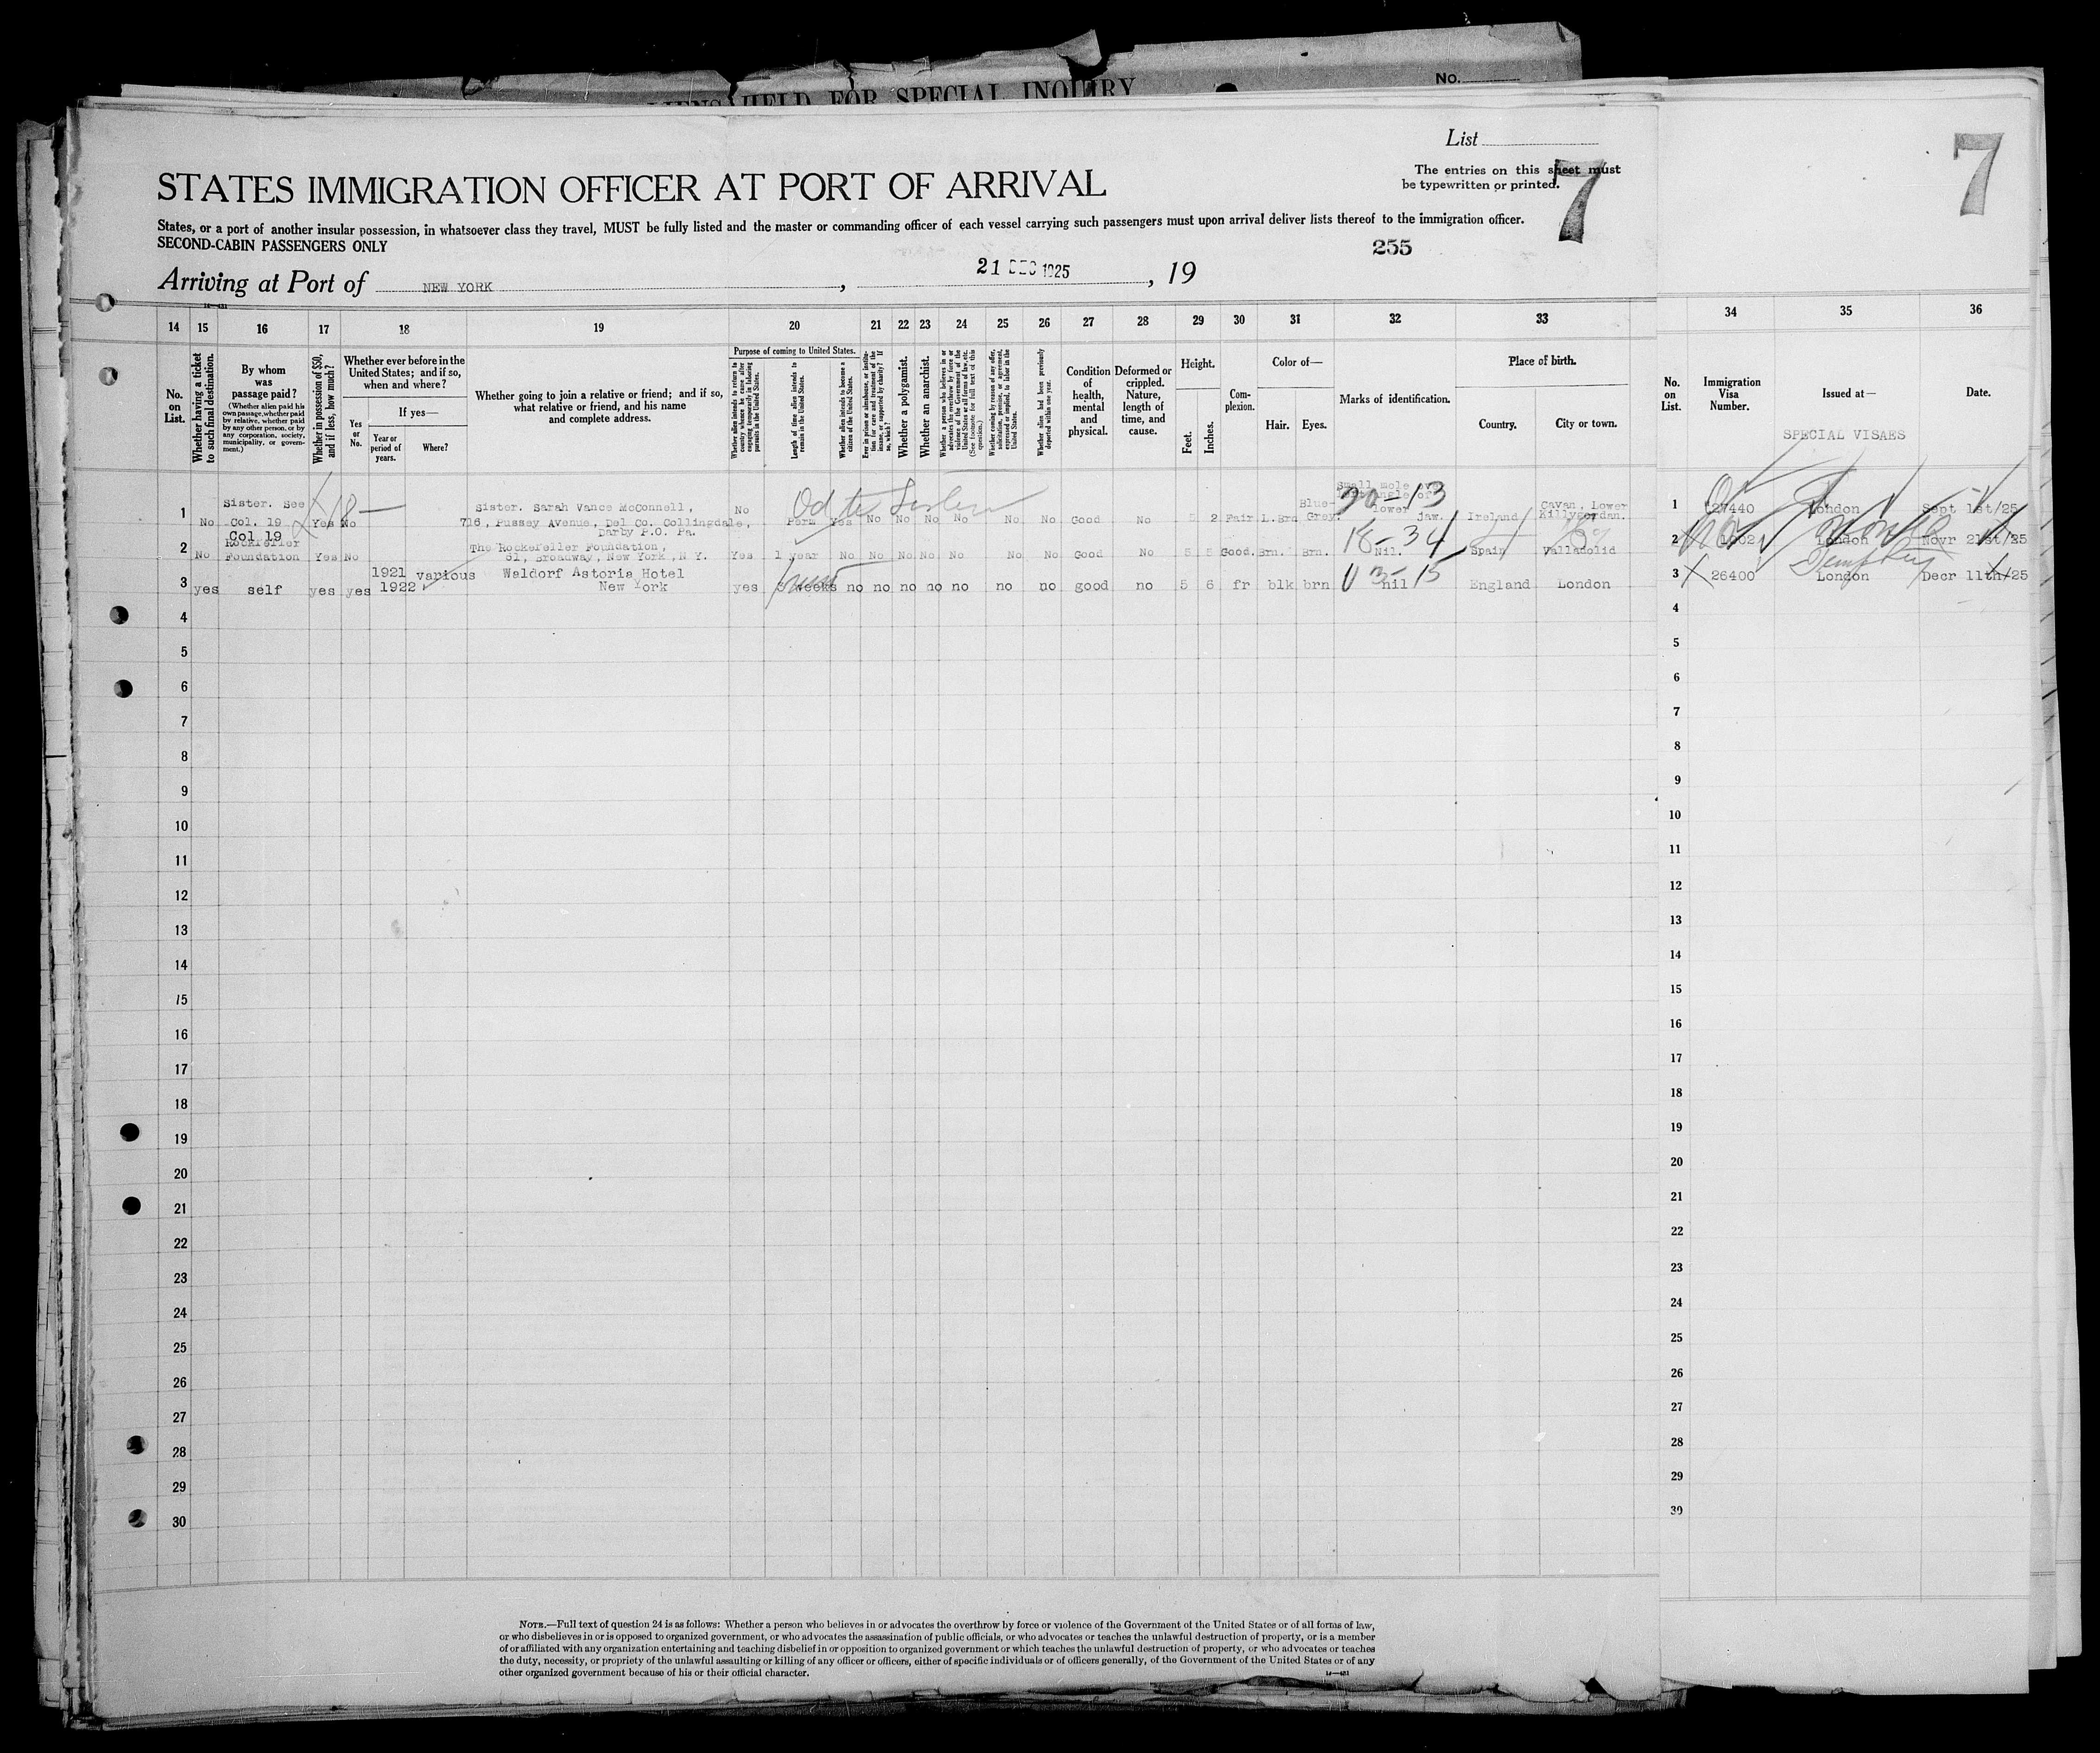 ALIENS HELD FOR SPECIAL INQUIRY
No.
List
7
The entries on this sheet must
be typewritten or printed.
7
STATES IMMIGRATION OFFICER AT PORT OF ARRIVAL
States, or a port of another insular possession, in whatsoever class they travel, MUST be fully listed and the master or commanding officer of each vessel carrying such passengers must upon arrival deliver lists thereof to the immigration officer.
SECOND-CABIN PASSENGERS ONLY
255
Arriving at Port of NEW YORK , 21 DEC 1925 , 19
14 15 16 17 18 19 20 21 22 23 24 25 26 27 28 29 30 31 32 33 34 35 36
No. on List.
Whether having a ticket to such final destination.
By whom was passage paid?
(Whether alien paid his own passage, whether paid by relative, whether paid by any other person, or by any corporation, society, municipality, or government.)
Whether in possession of $50, and if less, how much?
Whether ever before in the United States; and if so, when and where?
Yes or No.
If yes—
Year or period of years.
Where?
Whether going to join a relative or friend; and if so, what relative or friend, and his name and complete address.
Purpose of coming to United States.
Whether alien intends to return to country whence he came after engaging temporarily in laboring pursuits in the United States.
Length of time alien intends to remain in the United States.
Whether alien intends to become a citizen of the United States.
Ever in prison or almshouse, or institution for care and treatment of the insane, or supported by charity? If so, which?
Whether a polygamist.
Whether an anarchist.
Whether a person who believes in or advocates the overthrow by force or violence of the Government of the United States or all forms of law, etc. (See footnote for full text of this question.)
Whether coming by reason of any offer, solicitation, promise, or agreement, expressed or implied, to labor in the United States.
Whether alien had been previously deported within one year.
Condition of health, mental and physical.
Deformed or crippled. Nature, length of time, and cause.
Height.
Feet. Inches.
Complexion.
Color of—
Hair. Eyes.
Marks of identification.
Place of birth.
Country. City or town.
No. on List.
Immigration Visa Number.
Issued at—
Date.
SPECIAL VISAES
1 No Sister. See Col. 19 Yes No Sister. Sarah Vance McConnell, 716, Pussey Avenue, Del Co. Collingdale, Darby P.O. Pa. No Perm Yes No No No No No No Good No 5 2 Fair L.Brn Blue-Grey. Small mole lower jaw. Ireland Cavan, Lower Killygordan. 1 27440 London Sept 1st/25
20-13
2 No Col 19 Rockefeller Foundation Yes No The Rockefeller Foundation, 61, Broadway, New York, N Y. Yes 1 year No No No No No No No Good No 5 5 Good. Brn. Brn. Nil. Spain Valladolid 2 London Novr 21st/25
18-34
3 yes self yes yes 1921 1922 various Waldorf Astoria Hotel New York yes weeks no no no no no no no good no 5 6 fr blk brn nil England London 3 26400 London Decr 11th/25
4 4
5 5
6 6
7 7
8 8
9 9
10 10
11 11
12 12
13 13
14 14
15 15
16 16
17 17
18 18
19 19
20 20
21 21
22 22
23 23
24 24
25 25
26 26
27 27
28 28
29 29
30 30
NOTE.—Full text of question 24 is as follows: Whether a person who believes in or advocates the overthrow by force or violence of the Government of the United States or of all forms of law,
or who disbelieves in or is opposed to organized government, or who advocates the assassination of public officials, or who advocates or teaches the unlawful destruction of property, or is a member
of or affiliated with any organization entertaining and teaching disbelief in or opposition to organized government or which teaches the unlawful destruction of property, or who advocates or teaches
the duty, necessity, or propriety of the unlawful assaulting or killing of any officer or officers, either of specific individuals or of officers generally, of the Government of the United States or of any
other organized government because of his or their official character.